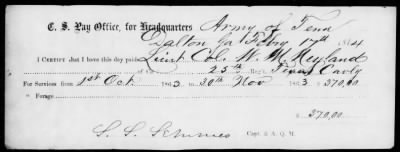 C. S. Pay Office, for Headquarters Army of Tenn
Dalton Ga Feby 17th 1864
I CERTIFY that I have this day paid Lieut Col. W. M. Neyland
of the 25th Reg't Texas Cavly
For Services from 1st Oct 1863 to 30th Nov 1863 $ 370,00
" Forage $
$ 370,00
S. S. Semmes
Capt. & A. Q. M.